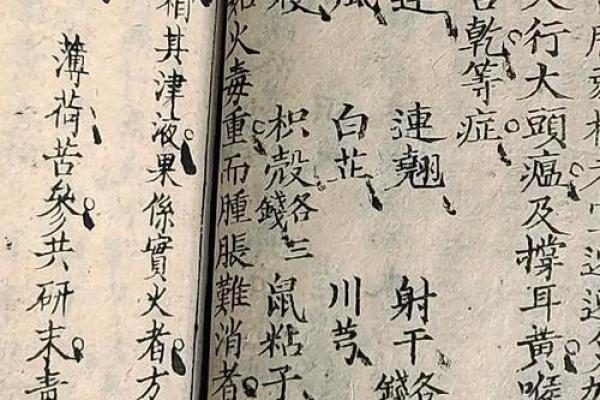 行大頭瘟及撐耳黃喉
乾等症
連翹 射干各錢
白芷 川芎
枳殼各三錢 鼠粘子
火毒重而腫脹難消者
其津液果係實火者方
薄荷苦參共研末青